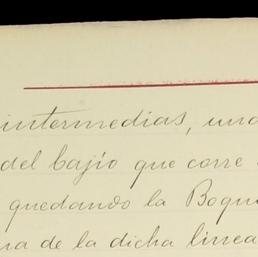 intermedias, una
del bajío que corre
quedando la Boqui
ra de la dicha linea